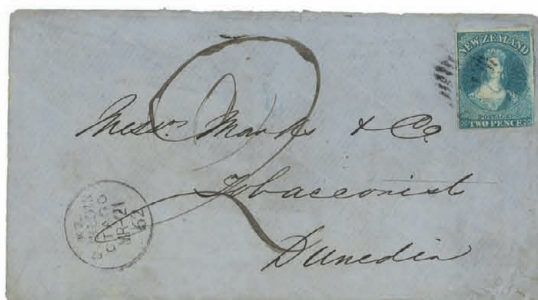 NEW ZEALAND
POSTAGE
TWO PENCE
2
Messrs Marks & Co
Tobacconist
Dunedin
OTAGO
MR 21
62